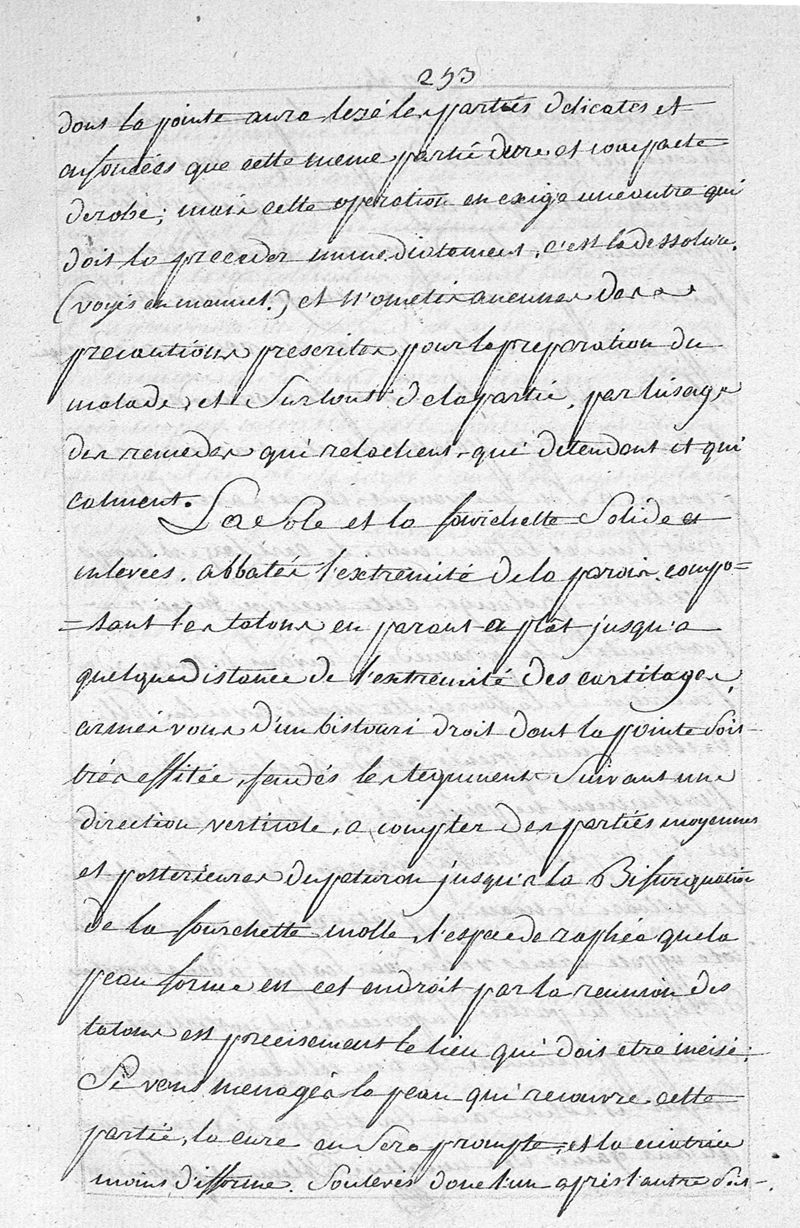 293
dont la pointe aura lezé les parties delicates et
enfoncées que cette meme partie dure et compacte
derobe; mais cette operation en exige une autre qui
doit la preceder immediatement, c'est la dessolure.
(voyés ce manuel.) et n'ometés aucunes des
precautions prescrites pour la preparation du
malade, et surtout de la partie, par l'usage
des remedes qui relachent, qui detendent et qui
calment.
La Sole et la fourchette Solide et
enlevées, abbatés l'extremité de la paroi, compo=
=sant les talons en parant a plat jusqu'a
quelque distance de l'extremité des cartilages,
armés vous d'un bistouri droit dont la pointe soit
trés effilée, fendés les teguments Suivant une
direction verticale, a compter des parties moyennes
et posterieures du paturon jusqu'a la Bifurquation
de la fourchette molle, l'espece de raphée que la
peau forme en cet endroit par la reunion des
talons est precisement le lieu qui doit etre incisé:
Si vous menagés la peau qui recouvre cette
partie, la cure en Sera prompte, et la cicatrice
moins difforme. Soulevés donc l'un après l'autre Soit